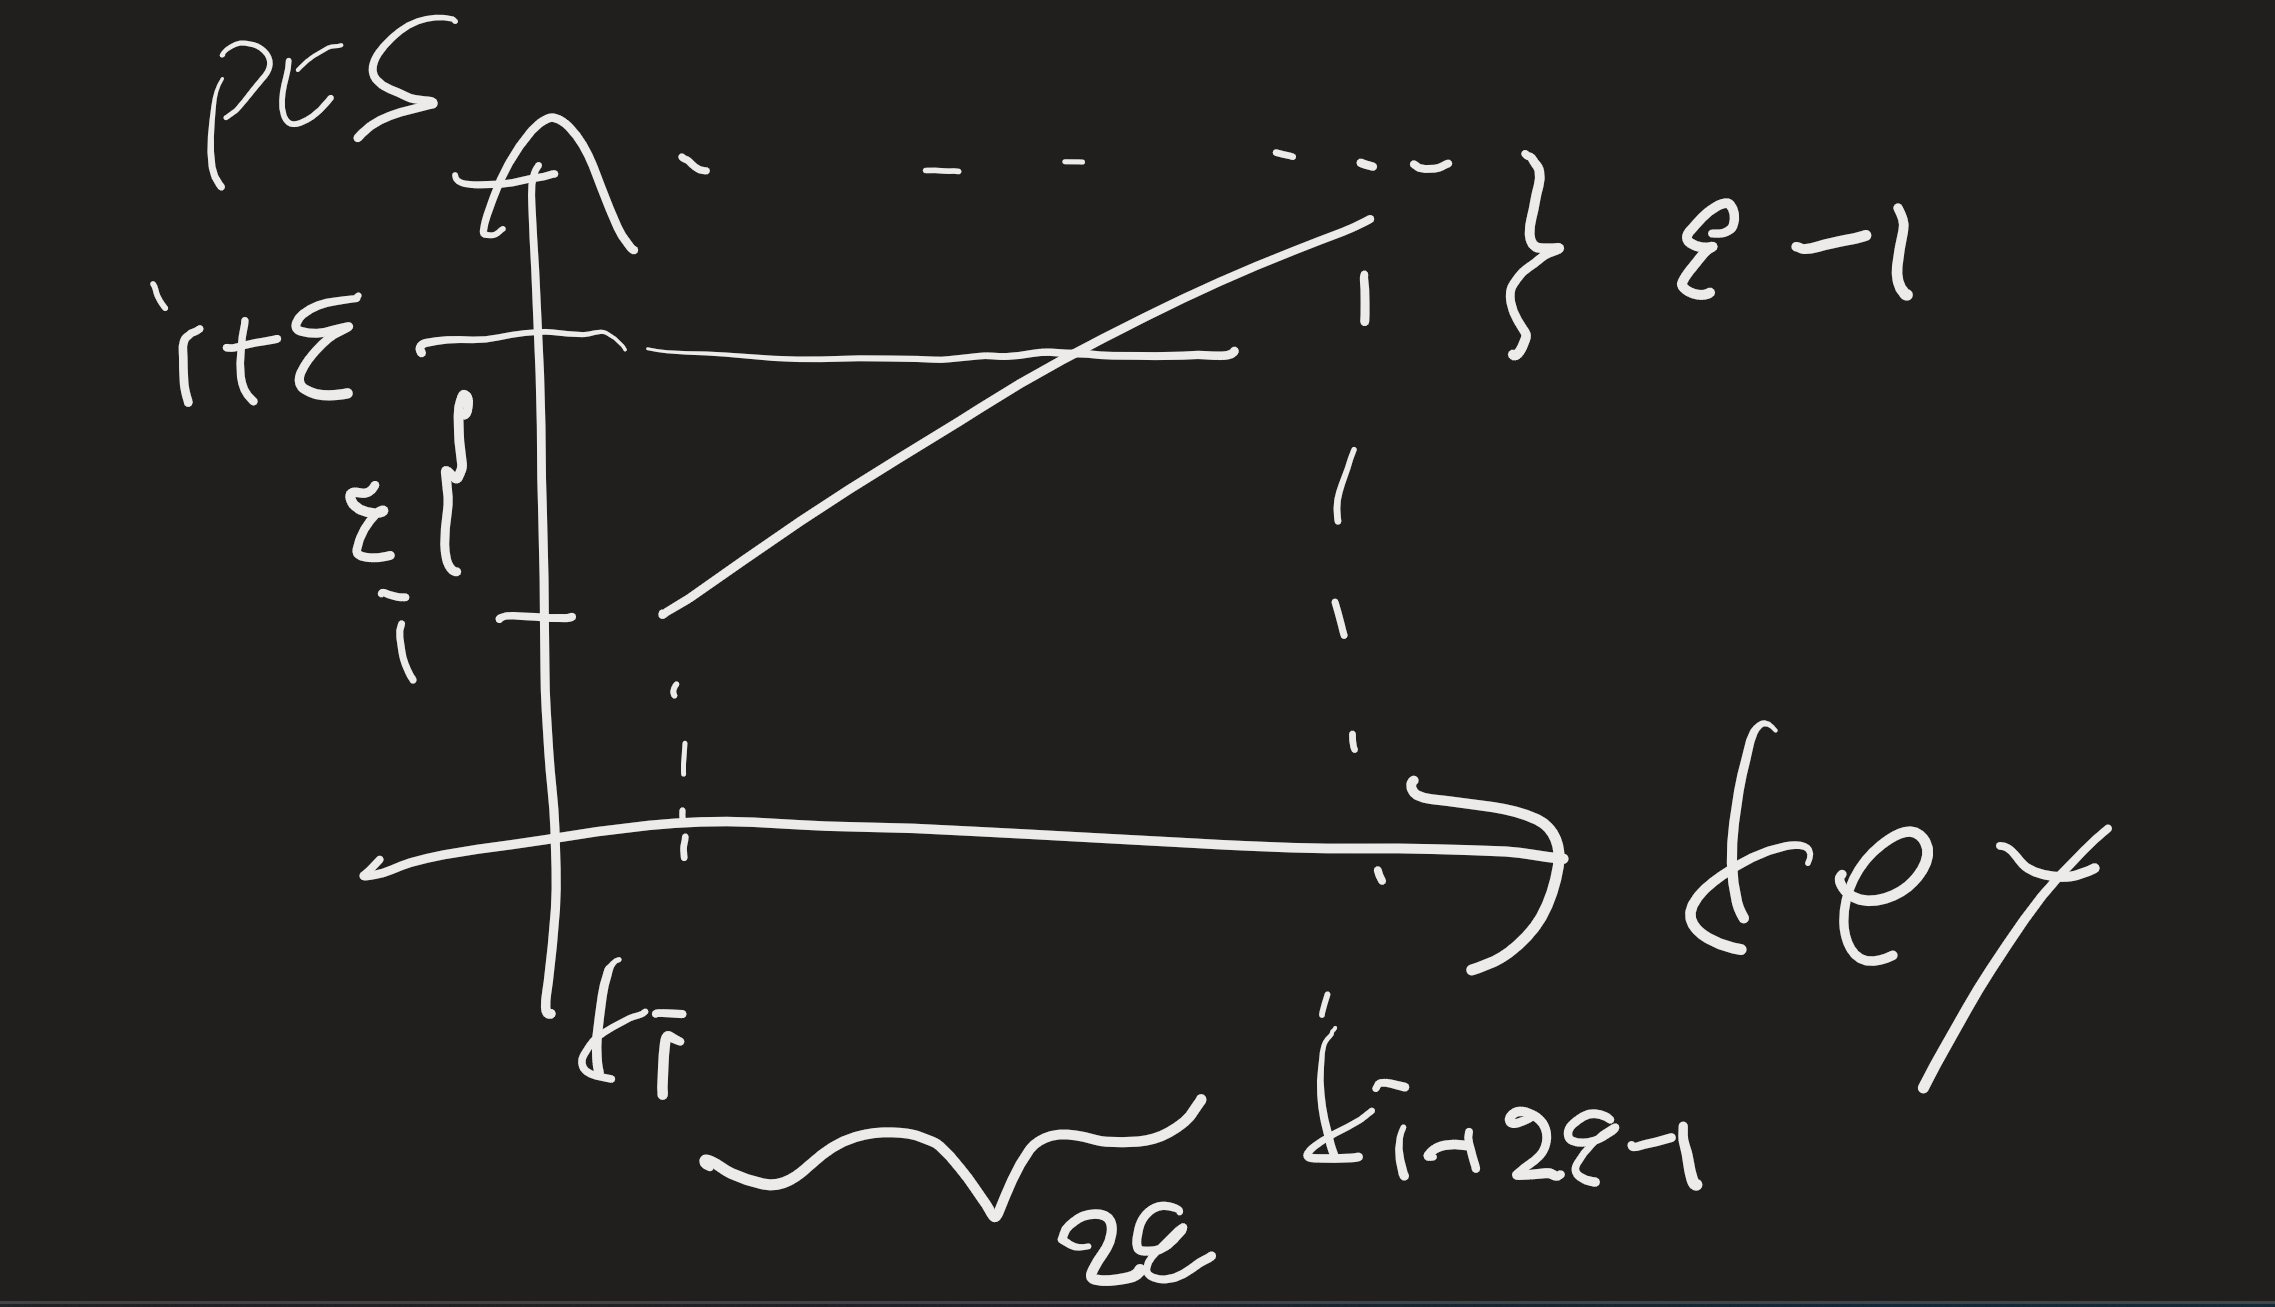 pos
ε - 1
i+ε
ε
i
key
k_i
k_i+2ε-1
2ε